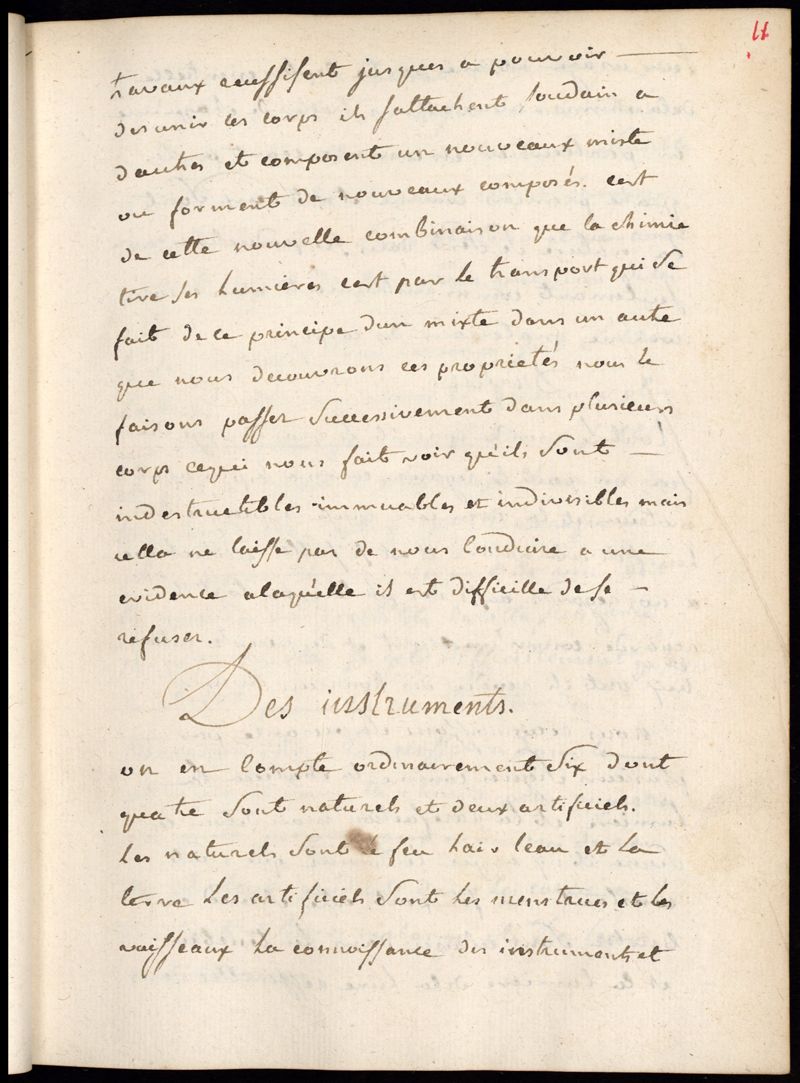 11
travaux reussisent jusques a pouvoir —
desunir ces corps ils sattachent soudain a
dautres et composent un nouveaux mixte
ou forment de nouveaux composés. cest
de cette nouvelle combinaison que la chimie
tire ses lumieres cest par le transport qui se
fait de ce principe dun mixte dans un autre
que nous decouvrons ces proprietés nous le
faisons passer successivement dans plusieurs
corps cequi nous fait voir qu'ils sont —
indestructibles immuables et indivisibles mais
cella ne laisse pas de nous conduire a une
evidence alaquelle il est difficille de se —
refuser.
Des instruments.
on en compte ordinairement six dont
quatre sont naturels et deux artificiels.
les naturels sont le feu lair leau et la
terre les artificiels sont les menstrues et les
vaisseaux la connoissance des instruments et